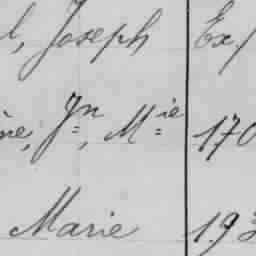 l, Joseph Ex.
ne, Jn, Mie 170
Marie 193